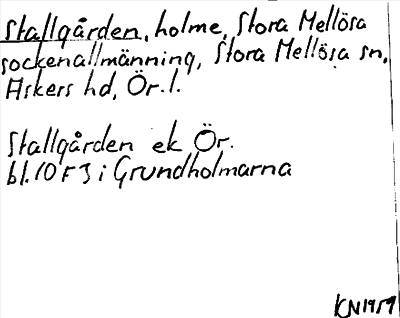 Stallgården, holme, Stora Mellösa
sockenallmänning, Stora Mellösa sn,
Askers hd, Ör. l.
Stallgården ek Ör.
bl. 10 F 3 i Grundholmarna
KN 1959